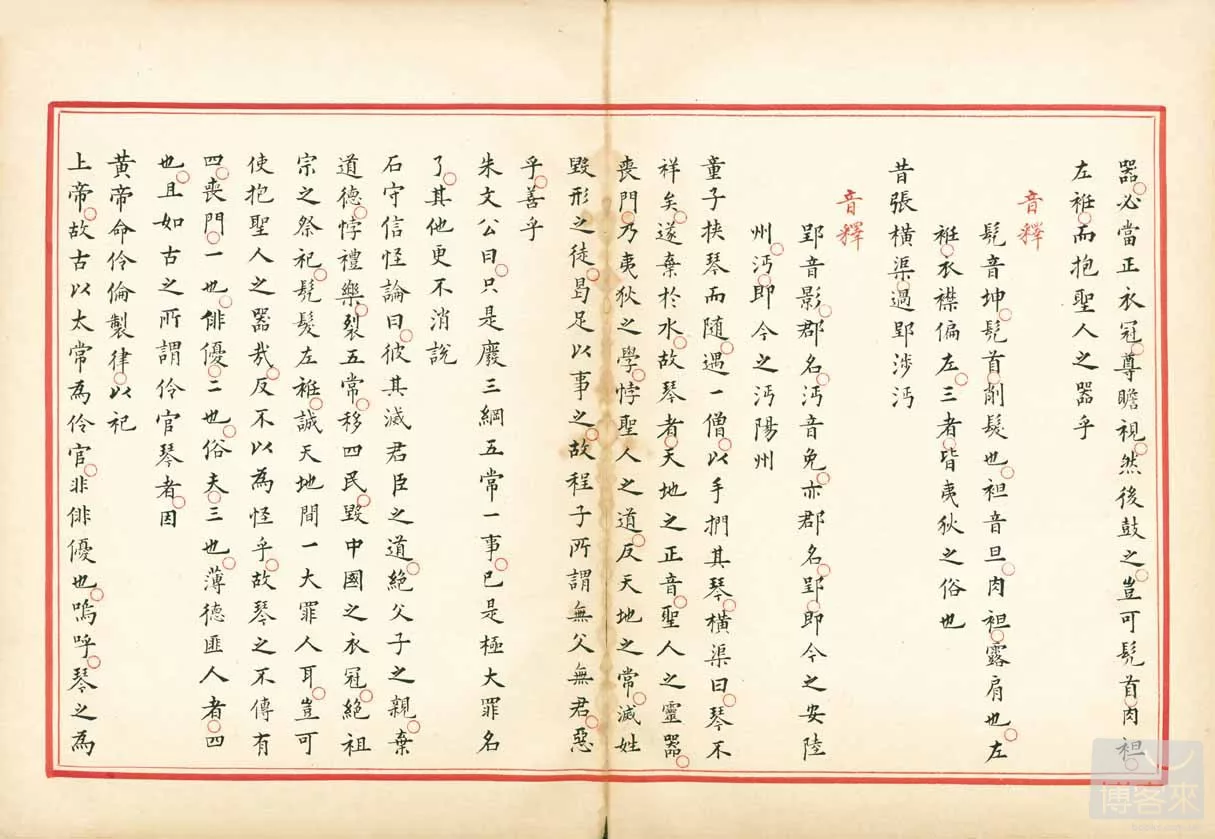 器。必當正衣冠。尊瞻視。然後鼓之。豈可髡首。肉袒。
左袵。而抱聖人之器乎
音釋
髡音坤。髡首。削髮也。袒音旦。肉袒。露肩也。左
袵。衣襟偏左。三者。皆夷狄之俗也
昔張橫渠。過郢涉沔
音釋
郢音影。郡名。沔音免。亦郡名。郢。即今之安陸
州。沔。即今之沔陽州
童子挾琴而隨。遇一僧。以手捫其琴。橫渠曰。琴不
祥矣。遂棄於水。故琴者。天地之正音。聖人之靈器。
喪門。乃夷狄之學。悖聖人之道。反天地之常。滅姓
毀形之徒。曷足以事之。故程子所謂無父無君。惡
乎。善乎
朱文公曰。只是廢三綱五常一事。已是極大罪名
了。其他更不消說
石守信怪論曰。彼其滅君臣之道。絕父子之親。棄
道德。悖禮樂。裂五常。移四民。毀中國之衣冠。絕祖
宗之祭祀。髡髮左袵。誠天地間一大罪人耳。豈可
使抱聖人之器哉。反不以為怪乎。故琴之不傳有
四。喪門。一也。俳優。二也。俗夫。三也。薄德匪人者。四
也。且如古之所謂伶官琴者。因
黃帝命伶倫製律。以祀
上帝。故古以太常為伶官。非俳優也。嗚呼。琴之為
博客來